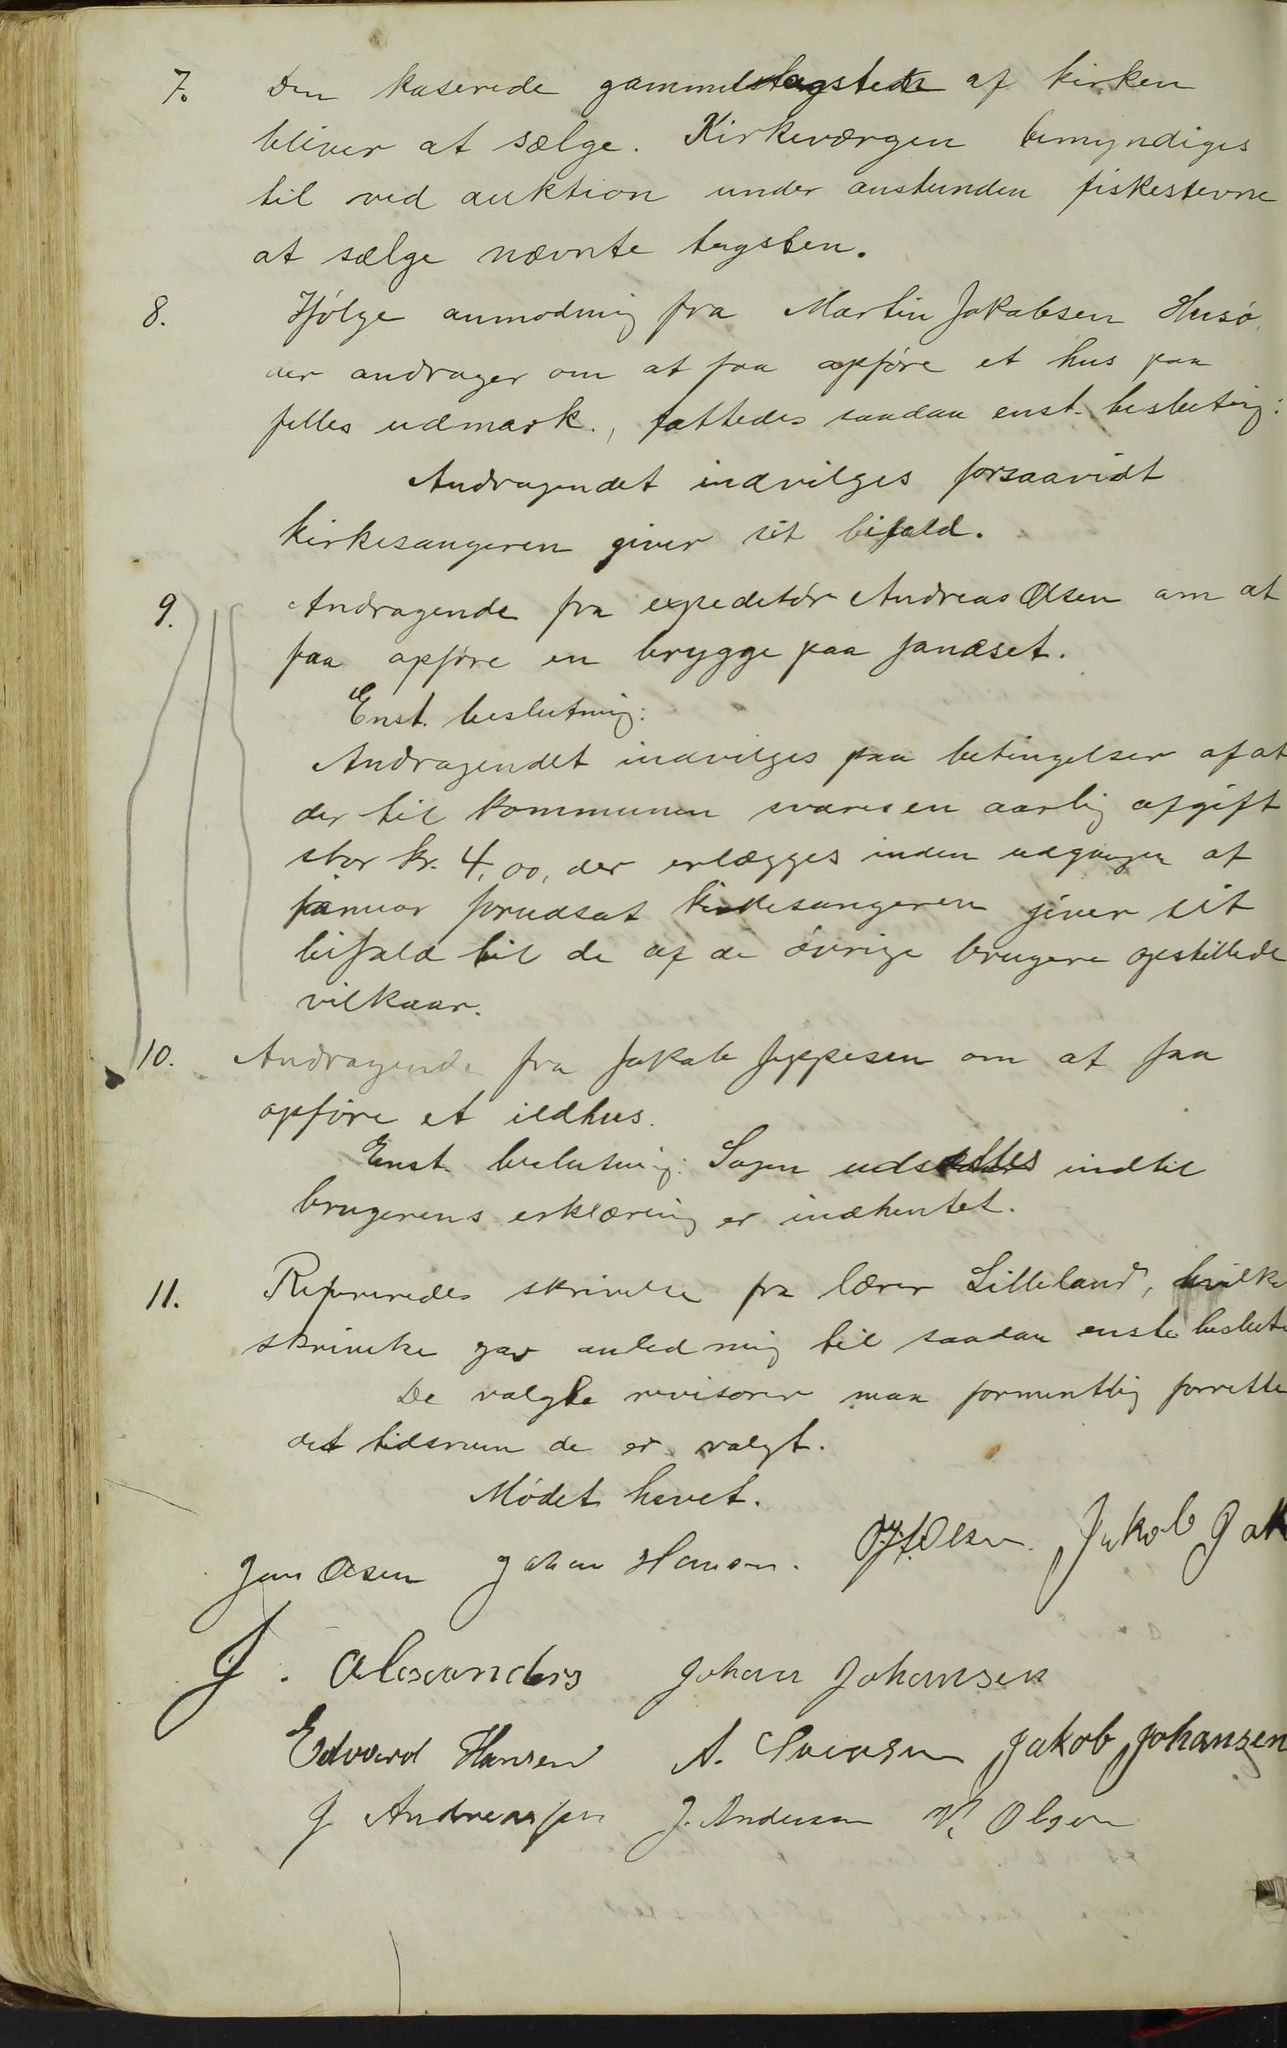 7. Den kaserede gammel tagsten af kirken
bliver at sælge. Kirkeværgen bemyndiges
til ved auktion under anstunden fiskestevne
at sælge nævnte tagsten.
8. Ifølge anmodning fra Martin Jakobsen Husø,
der andrager om at faa opføre et hus paa
felles udmark., fattedes saadan enst. beslutning:
Andragendet indvilges forsaavidt
kirkesangeren giver sit bifald.
9. Andragende fra expeditør Andreas Olsen om at
faa opføre en brygge paa Sanæset.
Enst. beslutning:
Andragendet indvilges paa betingelser af at
der til kommunen svares en aarlig afgift
stor kr. 4,00, der erlægges inden udgangen af
januar forudsat kirkesangeren giver sit
bifald til de af de øvrige brugere opstillede
vilkaar.
10. Andragende fra Jakob Jeppesen om at faa
opføre et ildhus.
Enst. beslutning: Sagen udsættes indtil
brugerens erklæring er indhentet.
11. Refereredes skrivelse fra lærer Lilleland, hvilke
skrivelse gav anledning til saadan enste beslut
De valgte revisorer maa formentlig forrette
det tidsrum de er valgt.
Mødet hævet.
Jens Olsen Johan Hansen. Olsen. Jakob Jak
J. Alexanders Johan Johansen
Edvard Hansen A. Jakob Johansen
J Andreassen J. Andersen Olsen